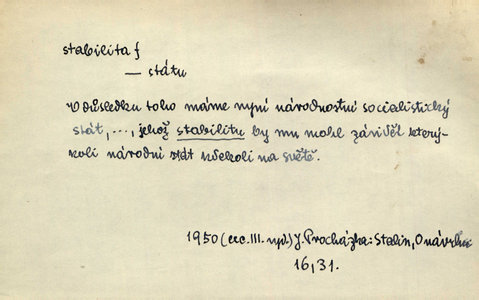 stabilita f
— státu
V důsledku toho máme nyní národnostní socialistický
stát, ..., jehož stabilitu by mu mohl závidět který-
koli národní stát kdekoli na světě.
1950 (rec. III. vyd.) J. Procházka: Stalin, O návrhu
16, 31.